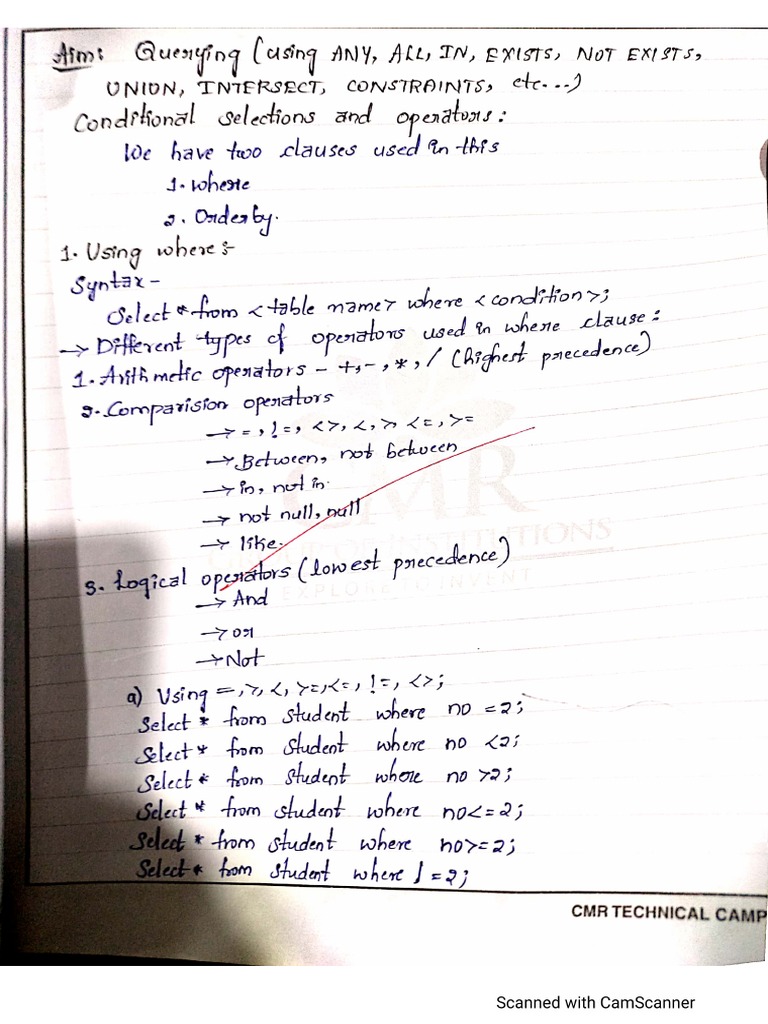 Aim: Querying (using ANY, ALL, IN, EXISTS, NOT EXISTS,
UNION, INTERSECT, CONSTRAINTS, etc...)
Conditional selections and operators:
We have two clauses used in this
1. Where
2. Order by.
1. Using where:-
Syntax -
Select * from <table name> where <condition>;
→ Different types of operators used in where clause:
1. Arithmetic operators - +, -, *, / (highest precedence)
2. Comparision operators
→ =, !=, <>, <, >, <=, >=
→ Between, not between
→ in, not in.
→ not null, null
→ like.
CMR
GROUP OF INSTITUTIONS
EXPLORE TO INVENT
3. Logical operators (lowest precedence)
→ And
→ or
→ Not
a) Using =, >, <, >=, <=, !=, <>;
Select * from student where no = 2;
Select * from student where no < 2;
Select * from student where no > 2;
Select * from student where no <= 2;
Select * from student where no >= 2;
Select * from student where ! = 2;
CMR TECHNICAL CAMP
Scanned with CamScanner